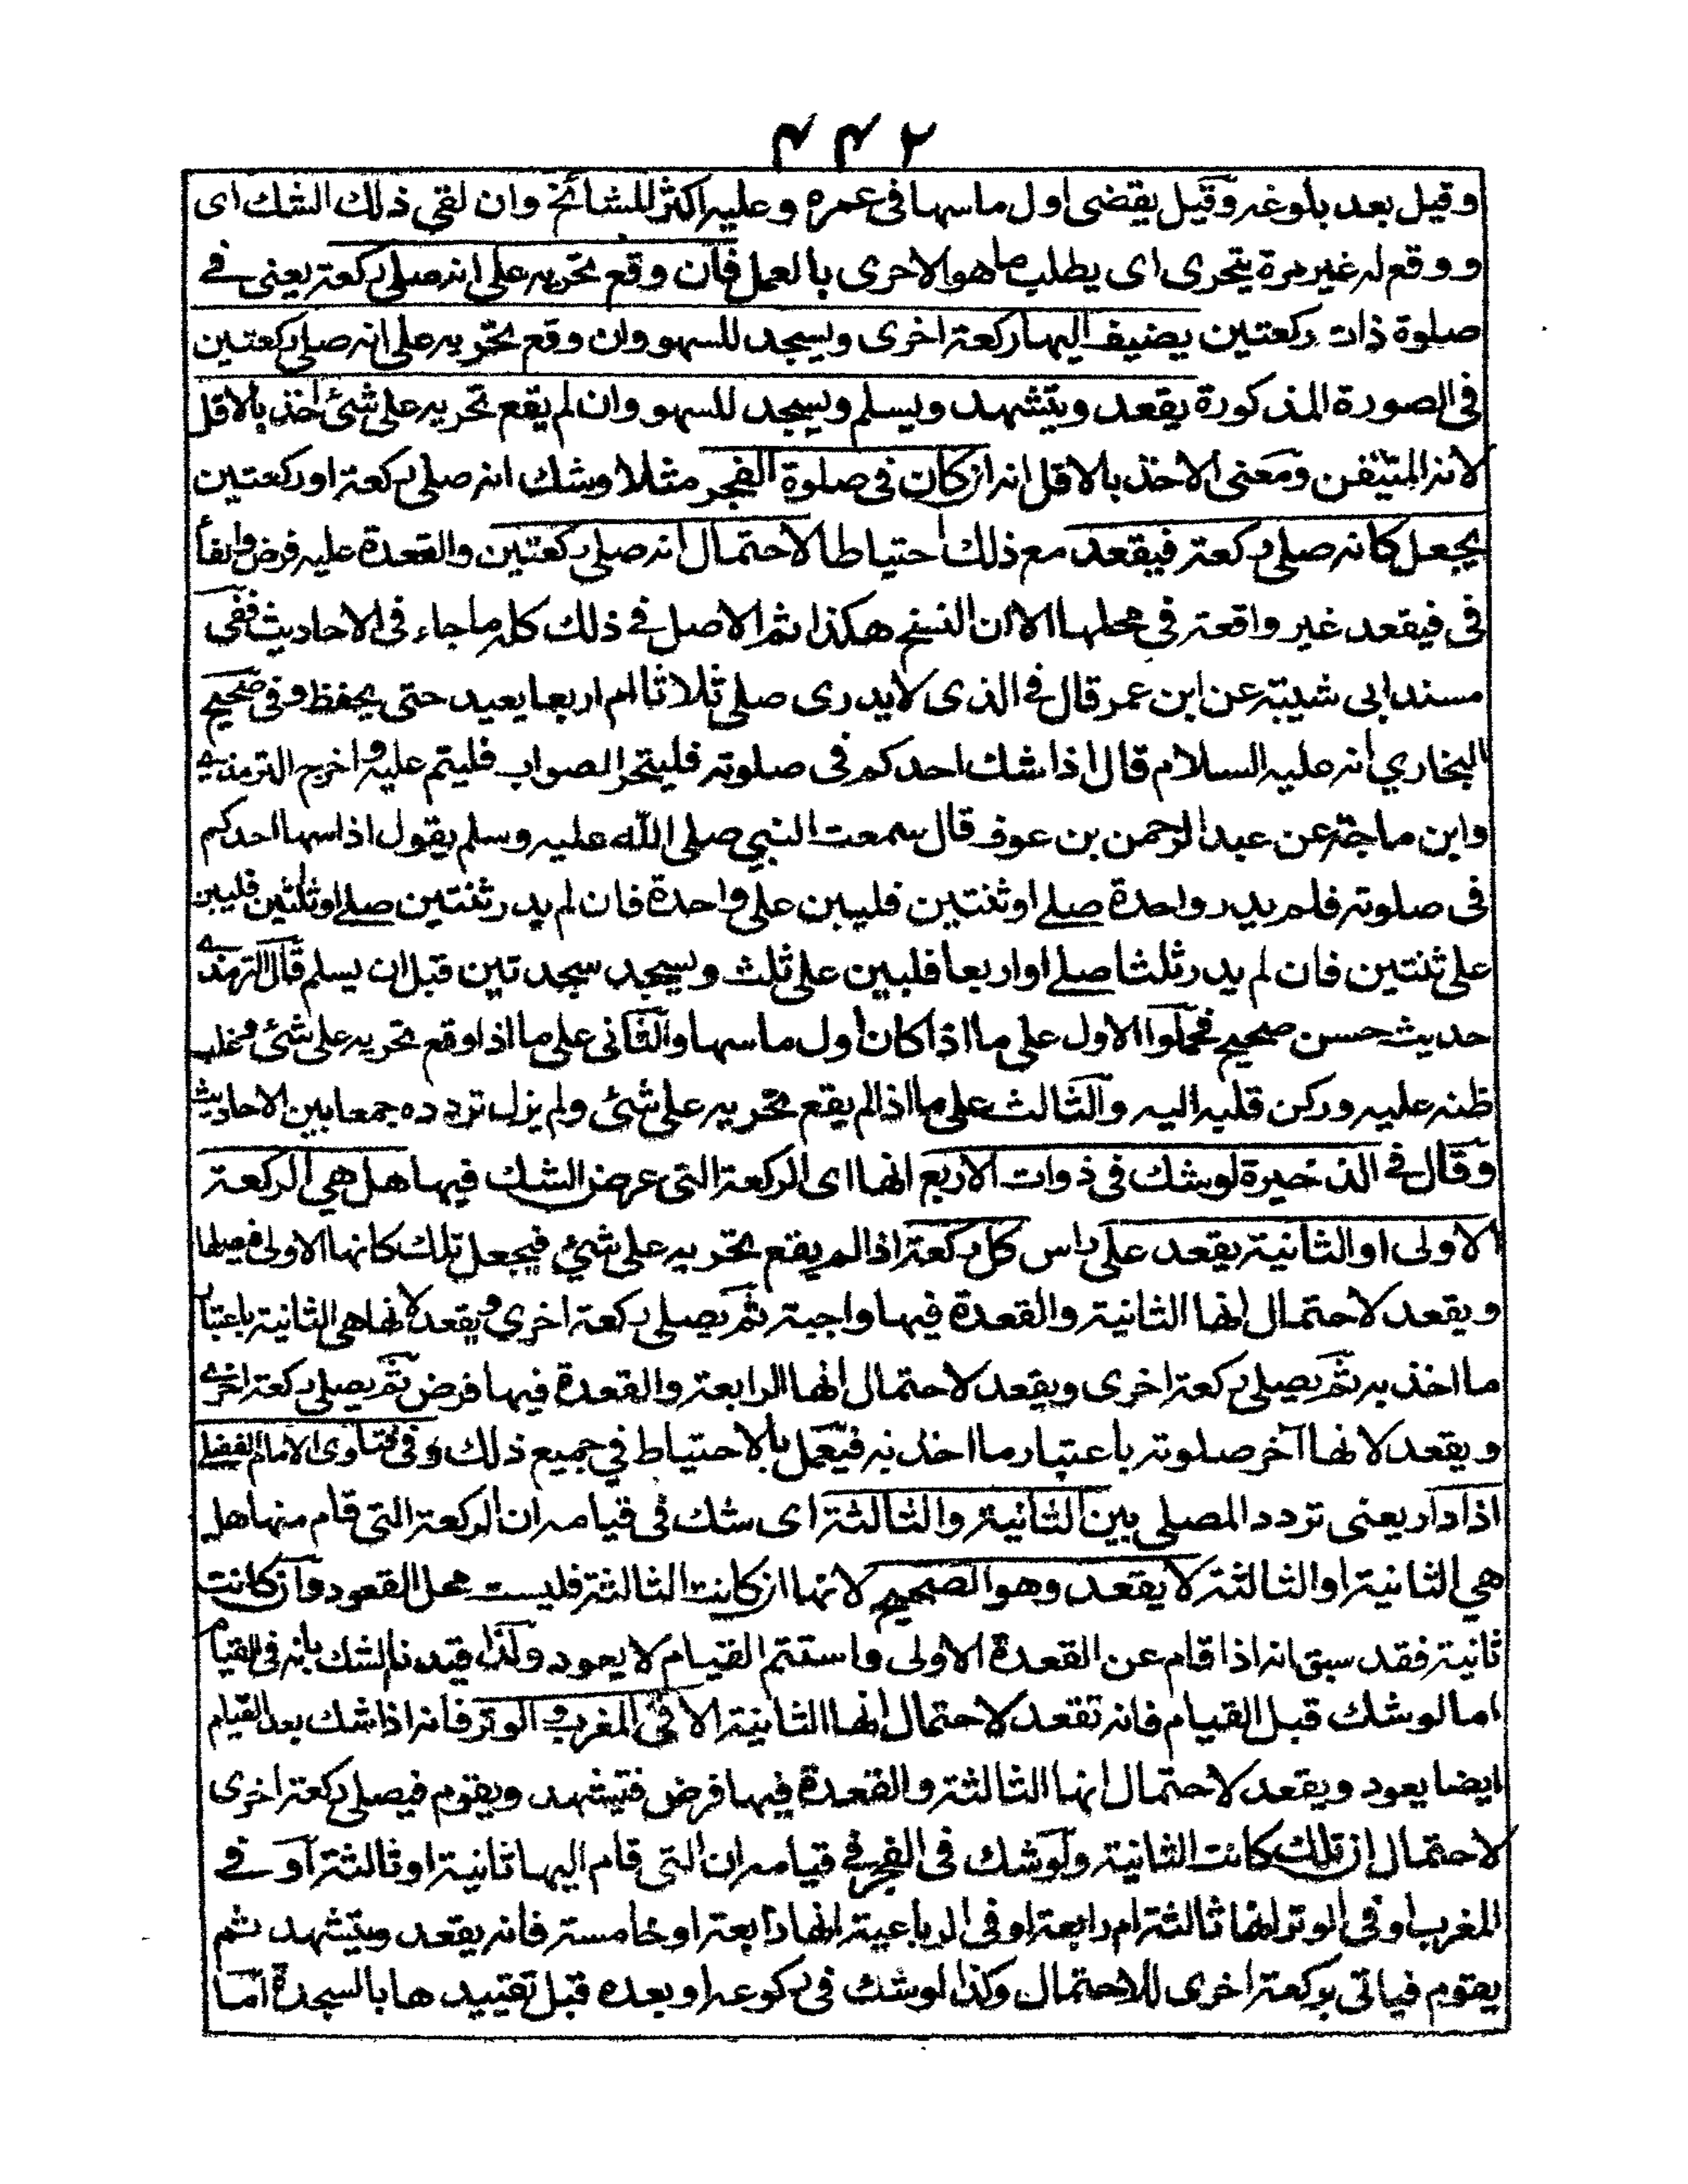 ۴۴۲
وقيل بعد بلوغه وقيل يقضى اول ما سها فى عمره وعليه اكثر المشائخ وان لقى ذلك الشك اى
ووقع له غير مرة يتحرى اى يطلب ما هو الاحرى بالعمل فان وقع تحريه على انه صلى ركعة يعنى فے
صلوة ذات ركعتين يضيف اليها ركعة اخرى ويسجد للسهو وان وقع تحريه على انه صلى ركعتين
فى الصورة المذكورة يقعد ويتشهد ويسلم ويسجد للسهو وان لم يقع تحريه على شئ اخذ بالاقل
لانه المتيقن ومعنى الاخذ بالاقل انه ان كان فى صلوة الفجر مثلا وشك انه صلى ركعة او ركعتين
يجعل كانه صلى ركعة فيقعد مع ذلك احتياطا لاحتمال انه صلى ركعتين والقعدة عليه فرض والفأ
فى فيقعد غير واقعة فى محلها الا ان النسخ هكذا ثم الاصل فے ذلك كله ما جاء فى الاحاديث ففى
مسند ابى شيبة عن ابن عمر قال فے الذى لا يدرى صلى ثلاثا ام اربعا يعيد حتى يحفظ وفى صحيح
البخاري انه عليه السلام قال اذا شك احدكم فى صلوته فليتحر الصواب فليتم عليه واخرج الترمذے
وابن ماجة عن عبد الرحمن بن عوف قال سمعت النبي صلى الله عليه وسلم يقول اذا سها احدكم
فى صلوته فلم يدر واحدة صلے او ثنتين فليبن على واحدة فان لم يدر ثنتين صلے او ثلثين فليبن
على ثنتين فان لم يدر ثلثا صلے او اربعا فليبن على ثلث ويسجد سجدتين قبل ان يسلم قال الترمذے
حديث حسن صحيح فحملوا الاول على ما اذا كان اول ما سها والثانى على ما اذا وقع تحريه على شئ وغلب
ظنه عليه وركن قلبه اليه والثالث على ما اذا لم يقع تحريه على شئ ولم يزل تردده جمعا بين الاحاديث
وقال فے الذخيرة لو شك فى ذوات الاربع انها اى الركعة التى عرض الشك فيها هل هي الركعة
الاولى او الثانية يقعد على راس كل ركعة اذا لم يقع تحريه على شئ فيجعل تلك كانها الاولى فيصلها
ويقعد لاحتمال انها الثانية والقعدة فيها واجبة ثم يصلى ركعة اخرى ويقعد لانها هى الثانية باعتبار
ما اخذ به ثم يصلى ركعة اخرى ويقعد لاحتمال انها الرابعة والقعدة فيها فرض ثم يصلى ركعة اخرے
ويقعد لانها آخر صلوته باعتبار ما اخذ به فيعمل بالاحتياط في جميع ذلك وفى فتاوى الامام الفضلے
اذا دار يعنى تردد المصلى بين الثانية والثالثة اى شك فى قيامه ان الركعة التى قام منها هل
هي الثانية او الثالثة لا يقعد وهو الصحيح لانها ان كانت الثالثة فليست محل القعود وان كانت
ثانية فقد سبق انه اذا قام عن القعدة الاولى واستتم القيام لا يعود ولذا قيدنا الشك بانه فى القيام
اما لو شك قبل القيام فانه تقعد لاحتمال انها الثانية الا فى المغرب والوتر فانه اذا شك بعد القيام
ايضا يعود ويقعد لاحتمال انها الثالثة والقعدة فيها فرض فتيشهد ويقوم فيصلى ركعة اخرى
لاحتمال ان تلك كانت الثانية ولو شك فى الفجر فے قيامه ان التى قام اليها ثانية او ثالثة او فے
المغرب او فى الوتر انها ثالثة ام رابعة او فى الرباعية انها رابعة او خامسة فانه يقعد ويتشهد ثم
يقوم فياتى بركعة اخرى للاحتمال وكذا لو شك فى ركوعه او بعده قبل تقييدها بالسجدة اما